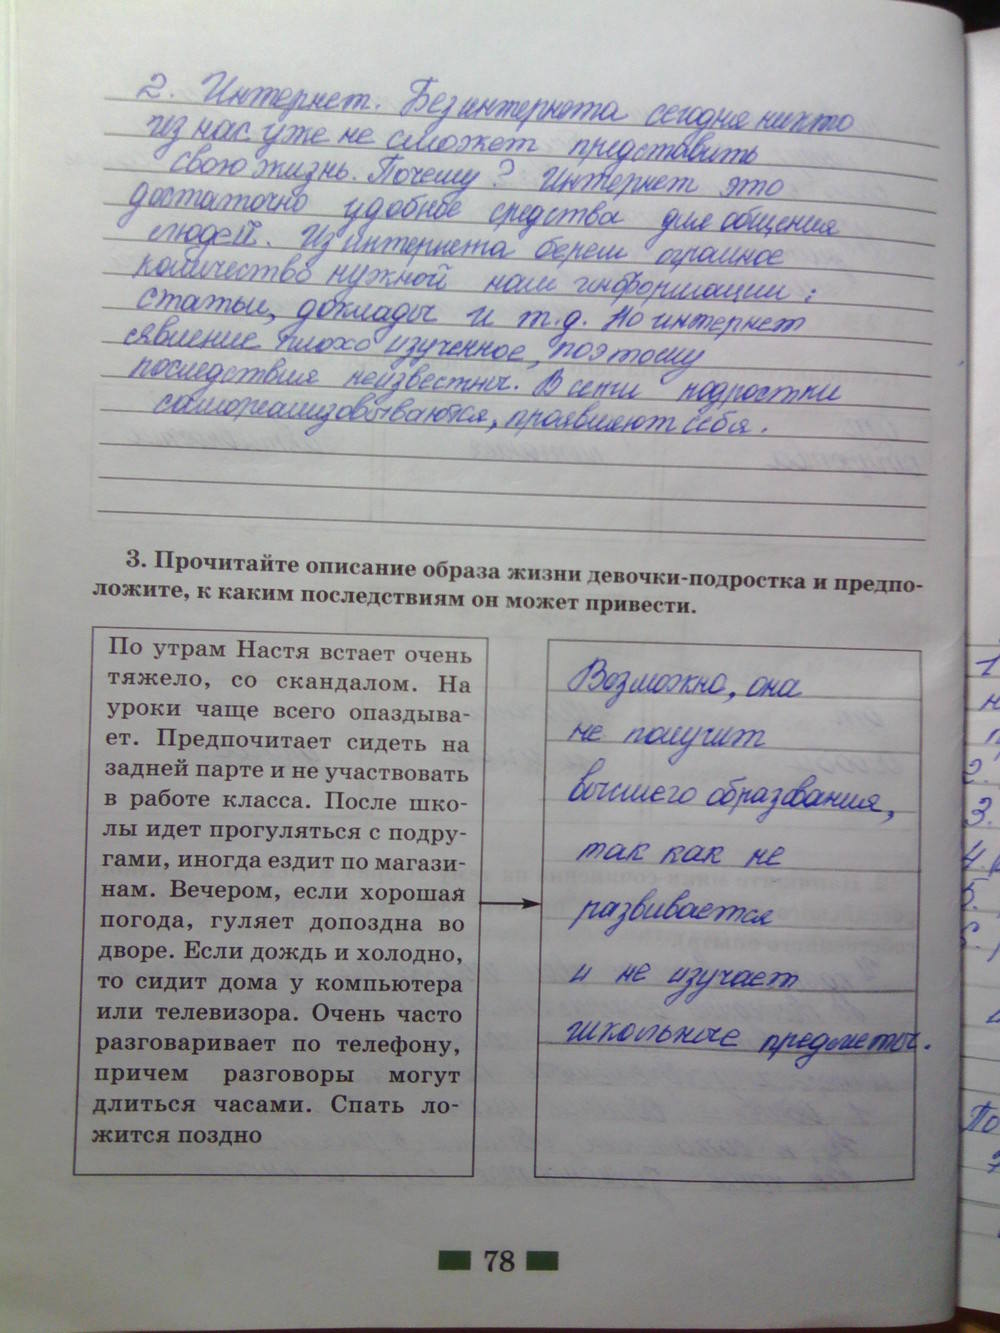 2. Интернет. Без интернета сегодня никто
из нас уже не сможет представить
свою жизнь. Почему? Интернет это
достаточно удобное средства для общения
людей. Из интернета берем огромное
количество нужной нам информации:
статьи, доклады и т.д. Но интернет
явление плохо изученное, поэтому
последствия неизвестны. В сети подростки
самореализовываются, проявляют себя.
3. Прочитайте описание образа жизни девочки-подростка и предпо-
ложите, к каким последствиям он может привести.
По утрам Настя встает очень
тяжело, со скандалом. На
уроки чаще всего опаздыва-
ет. Предпочитает сидеть на
задней парте и не участвовать
в работе класса. После шко-
лы идет прогуляться с подру-
гами, иногда ездит по магази-
нам. Вечером, если хорошая
погода, гуляет допоздна во
дворе. Если дождь и холодно,
то сидит дома у компьютера
или телевизора. Очень часто
разговаривает по телефону,
причем разговоры могут
длиться часами. Спать ло-
жится поздно
Возможно, она
не получит
высшего образвания,
так как не
развивается
и не изучает
школьные предметы.
78
1
2.
3.
4.
5.
По